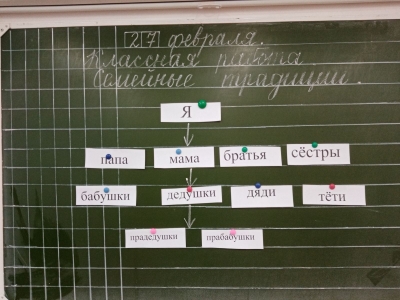 27 февраля.
Классная работа.
Семейные традиции.
Я
папа мама братья сёстры
бабушки дедушки дяди тёти
прадедушки прабабушки